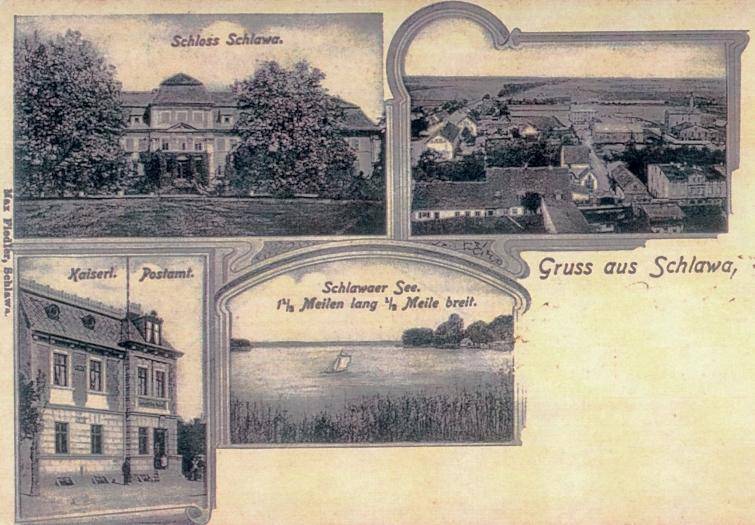 Schloss Schlawa.
Gruss aus Schlawa,
Kaiserl. Postamt.
Schlawaer See.
1½ Meilen lang ½ Meile breit.
Max Fiedler, Schlawa.